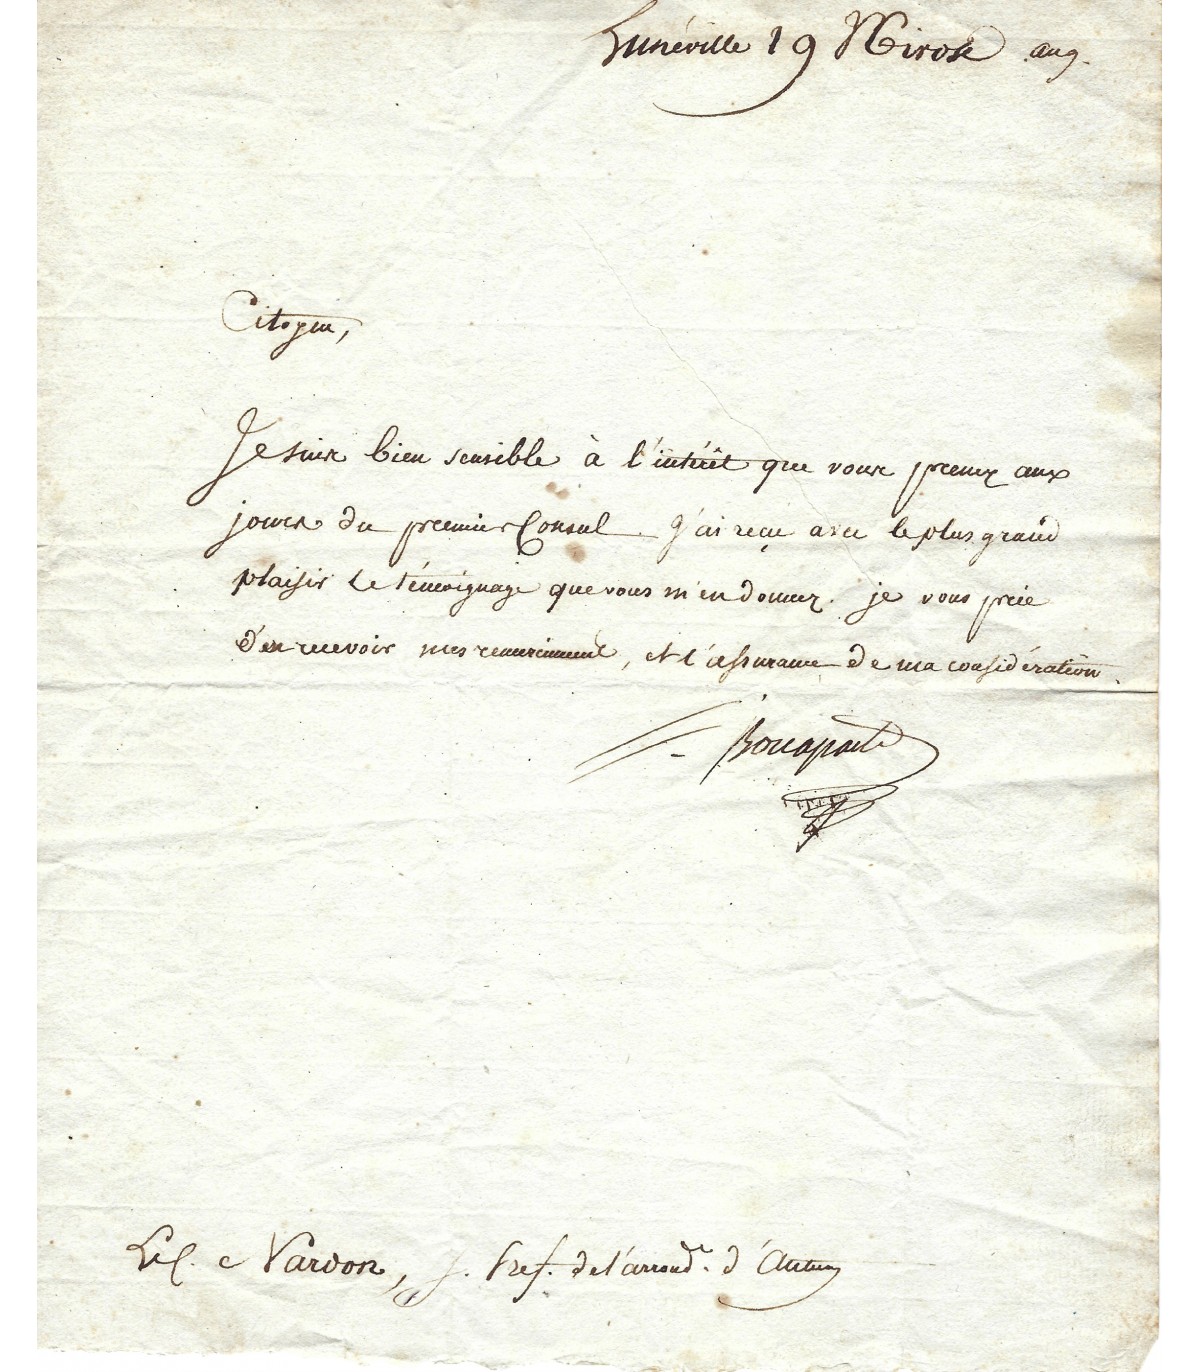 Lunéville 19 Nivose an 9.
Citoyen,
Je suis bien sensible à l'intérêt que vous prenez aux
jours du premier Consul. J'ai reçu avec le plus grand
plaisir le témoignage que vous m'en donnez. je vous prie
d'en recevoir mes remerciments, et l'assurance de ma considération.
Bonaparte
c Vardon, S. Pref. de l'arrond.t d'Autun